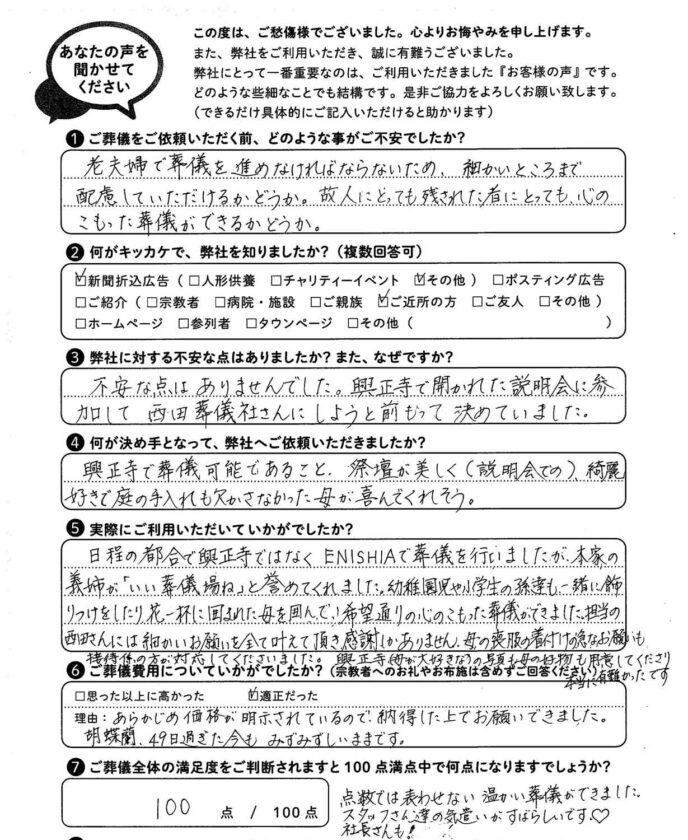 あなたの声を
聞かせて
ください
この度は、ご愁傷様でございました。心よりお悔やみを申し上げます。
また、弊社をご利用いただき、誠に有難うございました。
弊社にとって一番重要なのは、ご利用いただきました『お客様の声』です。
どのような些細なことでも結構です。是非ご協力をよろしくお願い致します。
（できるだけ具体的にご記入いただけると助かります）
❶ご葬儀をご依頼いただく前、どのような事がご不安でしたか?
老夫婦で葬儀を進めなければならないため、細かいところまで
配慮していただけるかどうか。故人にとっても残された者にとっても、心の
こもった葬儀ができるかどうか。
❷何がキッカケで、弊社を知りましたか?（複数回答可）
☑新聞折込広告（□人形供養 □チャリティーイベント ☑その他）□ポスティング広告
□ご紹介（□宗教者 □病院・施設 □ご親族 ☑ご近所の方 □ご友人 □その他）
□ホームページ □参列者 □タウンページ □その他（ ）
❸弊社に対する不安な点はありましたか? また、なぜですか?
不安な点はありませんでした。興正寺で開かれた説明会に参
加して西田葬儀社さんにしようと前もって決めていました。
❹何が決め手となって、弊社へご依頼いただきましたか?
興正寺で葬儀可能であること、祭壇が美しく（説明会での）綺麗
好きで庭の手入れも欠かさなかった母が喜んでくれそう。
❺実際にご利用いただいていかがでしたか?
日程の都合で興正寺ではなくENISHIAで葬儀を行いましたが、本家の
義姉が「いい葬儀場ね」と誉めてくれました。幼稚園児や小学生の孫達も一緒に飾
りつけをしたり、花一杯に囲まれた母を囲んで、希望通りの心のこもった葬儀ができました。担当の
西田さんには細かいお願いを全て叶えて頂き感謝しかありません。母の喪服の着付けの急なお願いも
接待係の方が対応してくださいました。興正寺（母が大好きな）の写真も母の好物も用意してくださり
本当に有難かったです
❻ご葬儀費用についていかがでしたか?（宗教者へのお礼やお布施は含めずご回答ください）
□思った以上に高かった ☑適正だった
理由：あらかじめ価格が明示されているので、納得した上でお願いできました。
胡蝶蘭、49日過ぎた今もみずみずしいままです。
❼ご葬儀全体の満足度をご判断されますと100点満点中で何点になりますでしょうか?
100 点 / 100点
点数では表わせない温かい葬儀ができました。
スタッフさん達の気遣いがすばらしいです♡
社長さんも！